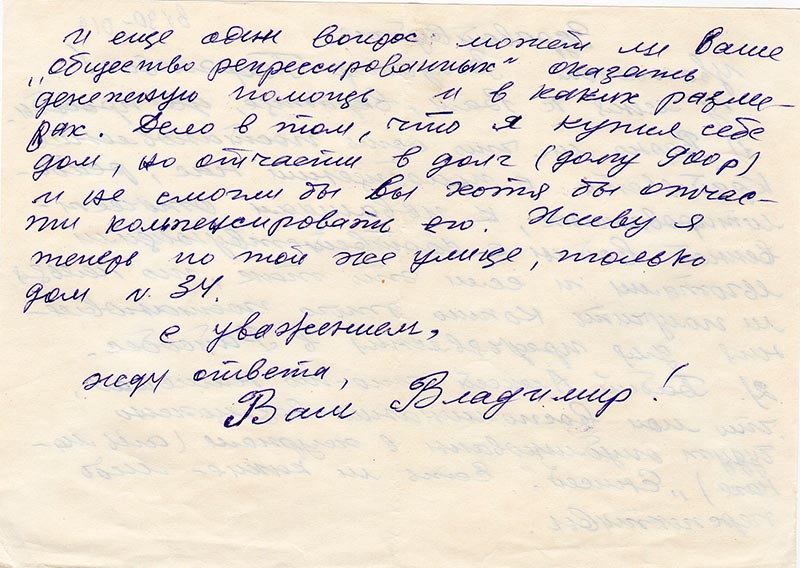 И еще один вопрос: может ли Ваше
„общество репрессированных" оказать
денежную помощь и в каких разме-
рах. Дело в том, что я купил себе
дом, но отчасти в долг (долгу 900р)
и не смогли бы вы хотя бы отчас-
ти компенсировать его. Живу я
теперь по той же улице, только
дом N. 34.
с уважением,
жду ответа,
Ваш Владимир!